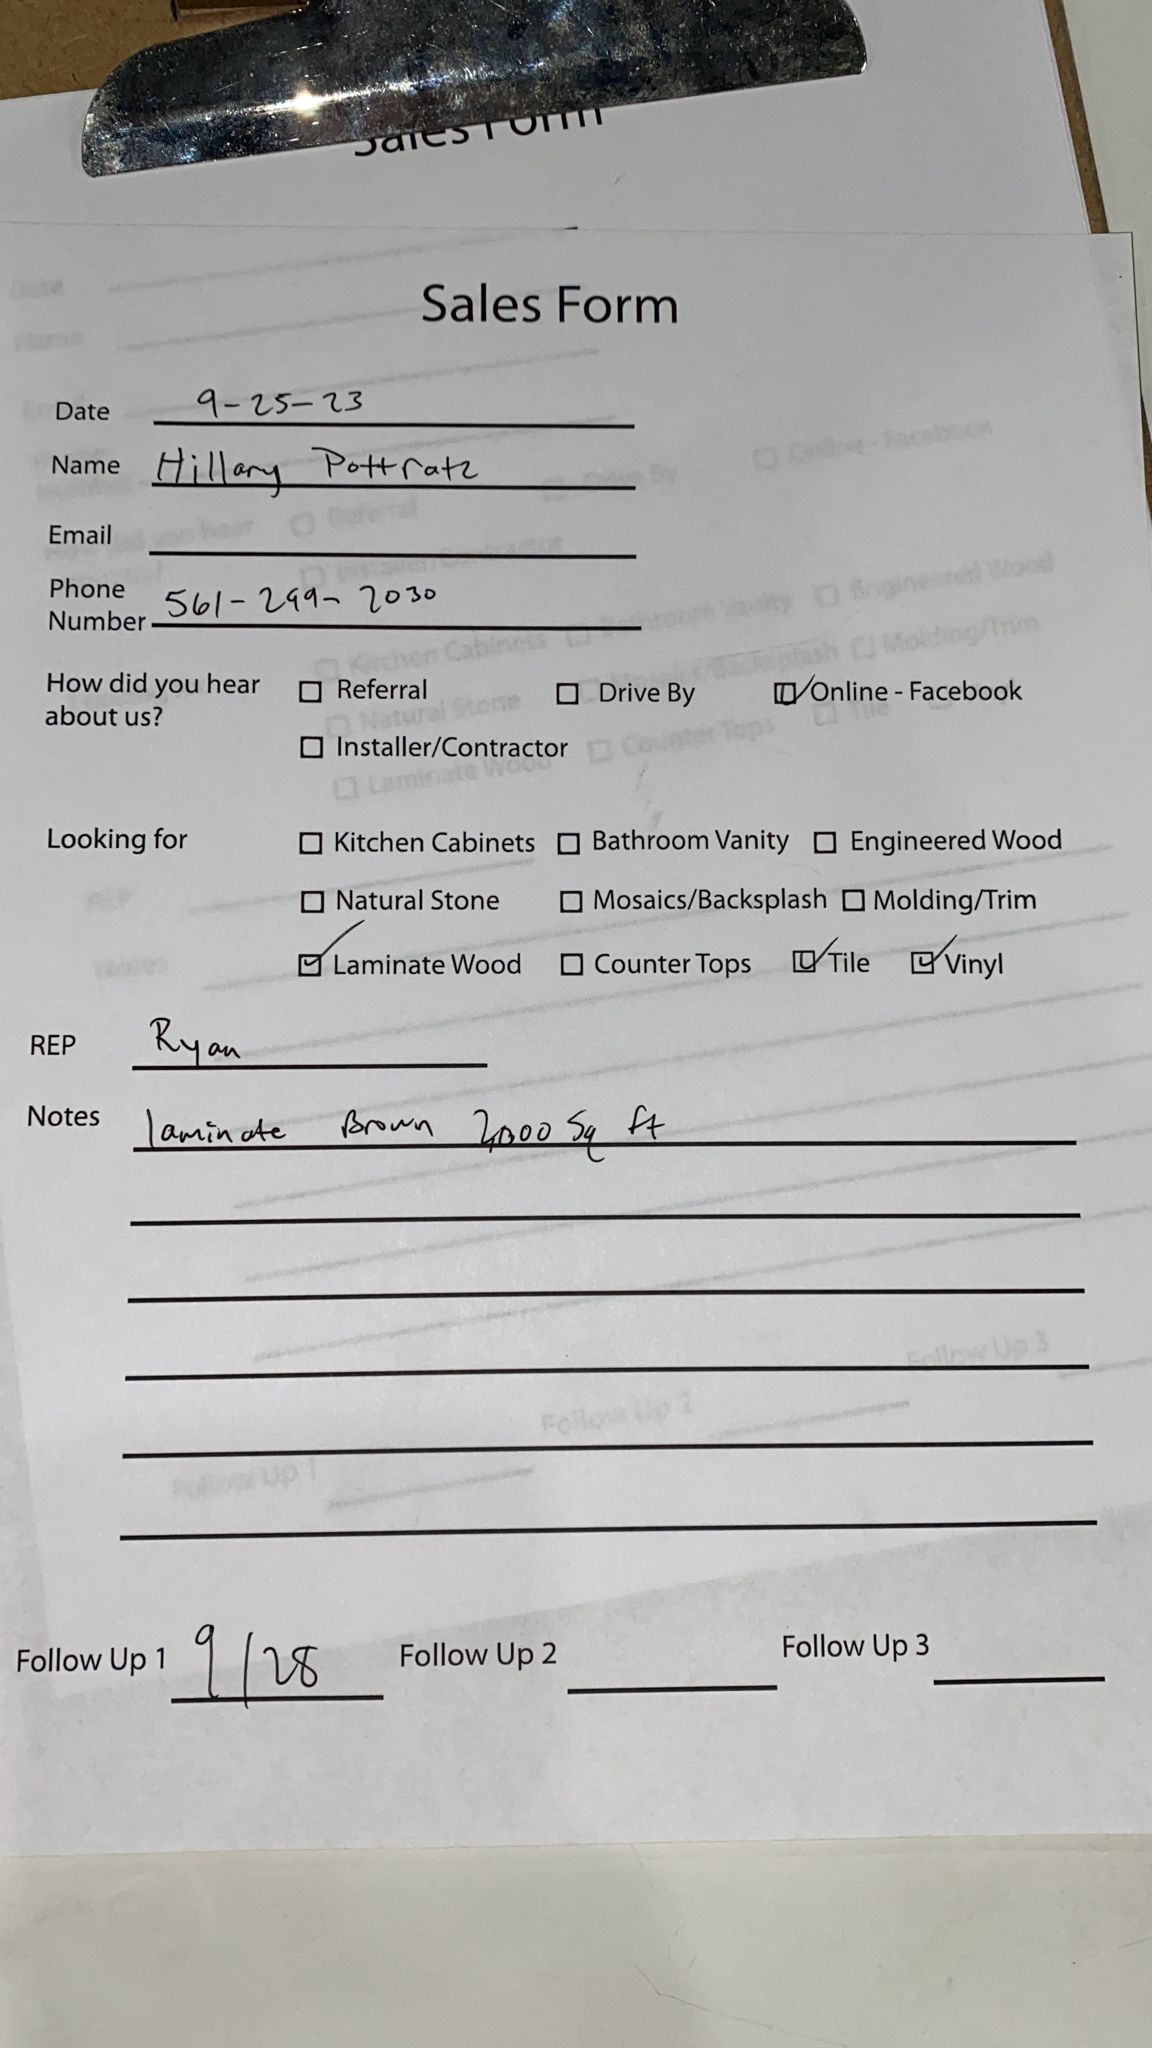 Sales Form
Sales Form
Date 9-25-23
Name Hillary Pottratz
Email
Phone
Number 561-299-2030
How did you hear
about us?
☐ Referral ☐ Drive By ☑ Online - Facebook
☐ Installer/Contractor
Looking for ☐ Kitchen Cabinets ☐ Bathroom Vanity ☐ Engineered Wood
☐ Natural Stone ☐ Mosaics/Backsplash ☐ Molding/Trim
☑ Laminate Wood ☐ Counter Tops ☑ Tile ☑ Vinyl
REP Ryan
Notes laminate Brown 2,000 Sq ft
Follow Up 1 9/28 Follow Up 2 Follow Up 3